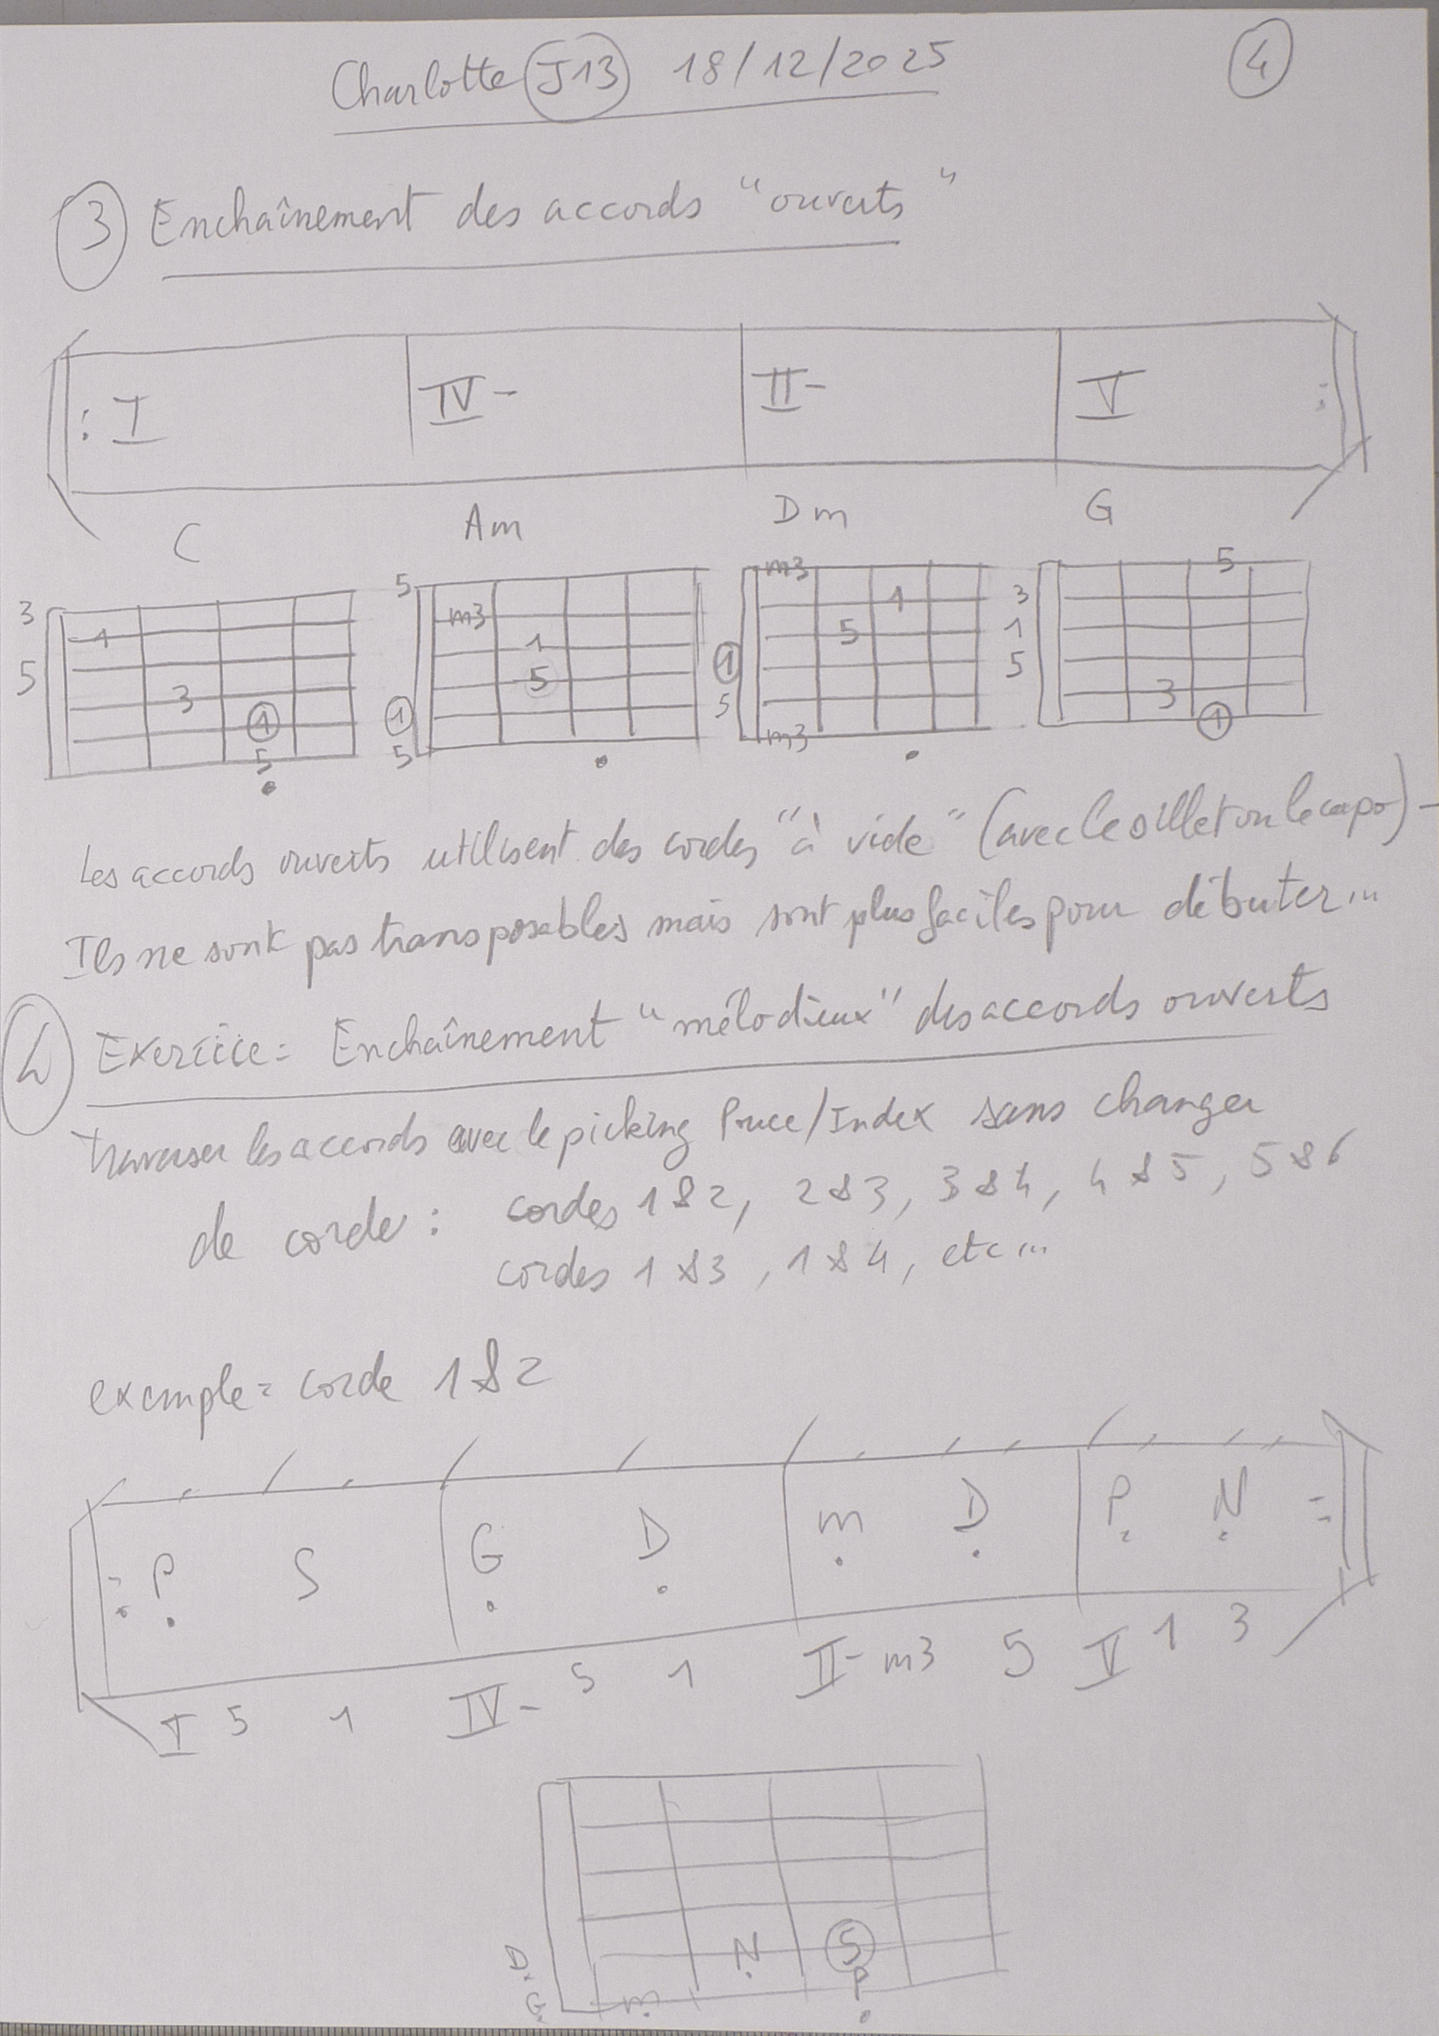 Charlotte J13 18/12/2025
4
3 Enchaînement des accords "ouverts"
: I IV- II- V :
C Am Dm G
3 5 m3 5
1 m3 1 3
5 1 5 1
3 5 1 5
1 1 5 3
5 5 m3 1
Les accords ouverts utilisent des cordes "à vide" (avec le sillet ou le capo) -
Ils ne sont pas transposables mais sont plus faciles pour débuter...
4 Exercice = Enchaînement "mélodieux" des accords ouverts
traverser les accords avec le picking Pouce/Index sans changer
de corde : cordes 1&2, 2&3, 3&4, 4&5, 5&6
cordes 1&3, 1&4, etc...
exemple = corde 1&2
: P S G D m D P N :
I 5 1 IV- 5 1 II- m3 5 V 1 3
D N S
G m P